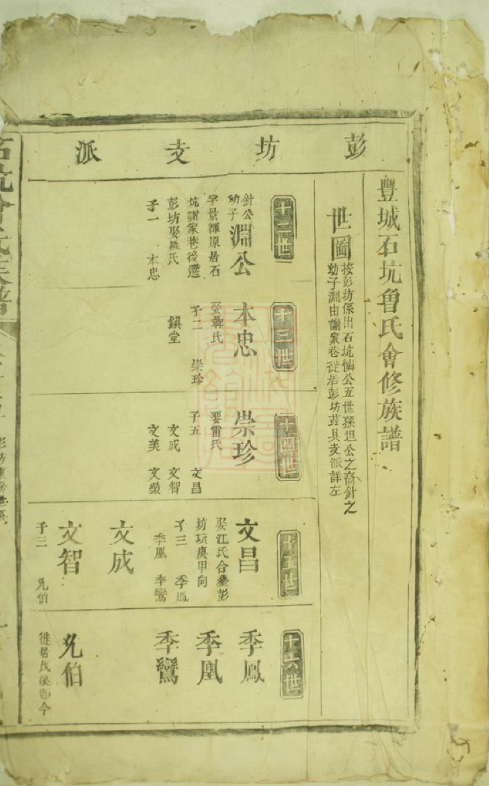 豐城石坑魯氏會修族譜
世圖
按彭坊係出石坑慎公五世孫坦公之裔針之
幼子淵由謝家巷徙居彭坊茲具支派詳左
彭坊支派
十二世
針公
幼子
淵公
字景淵原居石
坑謝家巷後遷
彭坊娶熊氏
子一 本忠
十三世
本忠
娶龔氏
子二 崇珍
鎮堂
十四世
崇珍
娶雷氏
子五 文昌
文成 文智
文美 文榮
十五世
文昌
娶江氏合葬彭
坊項庚甲向
子三 季鳳
季凰 季鸞
文成
文智
子三 允伯
十六世
季鳳
季凰
季鸞
允伯